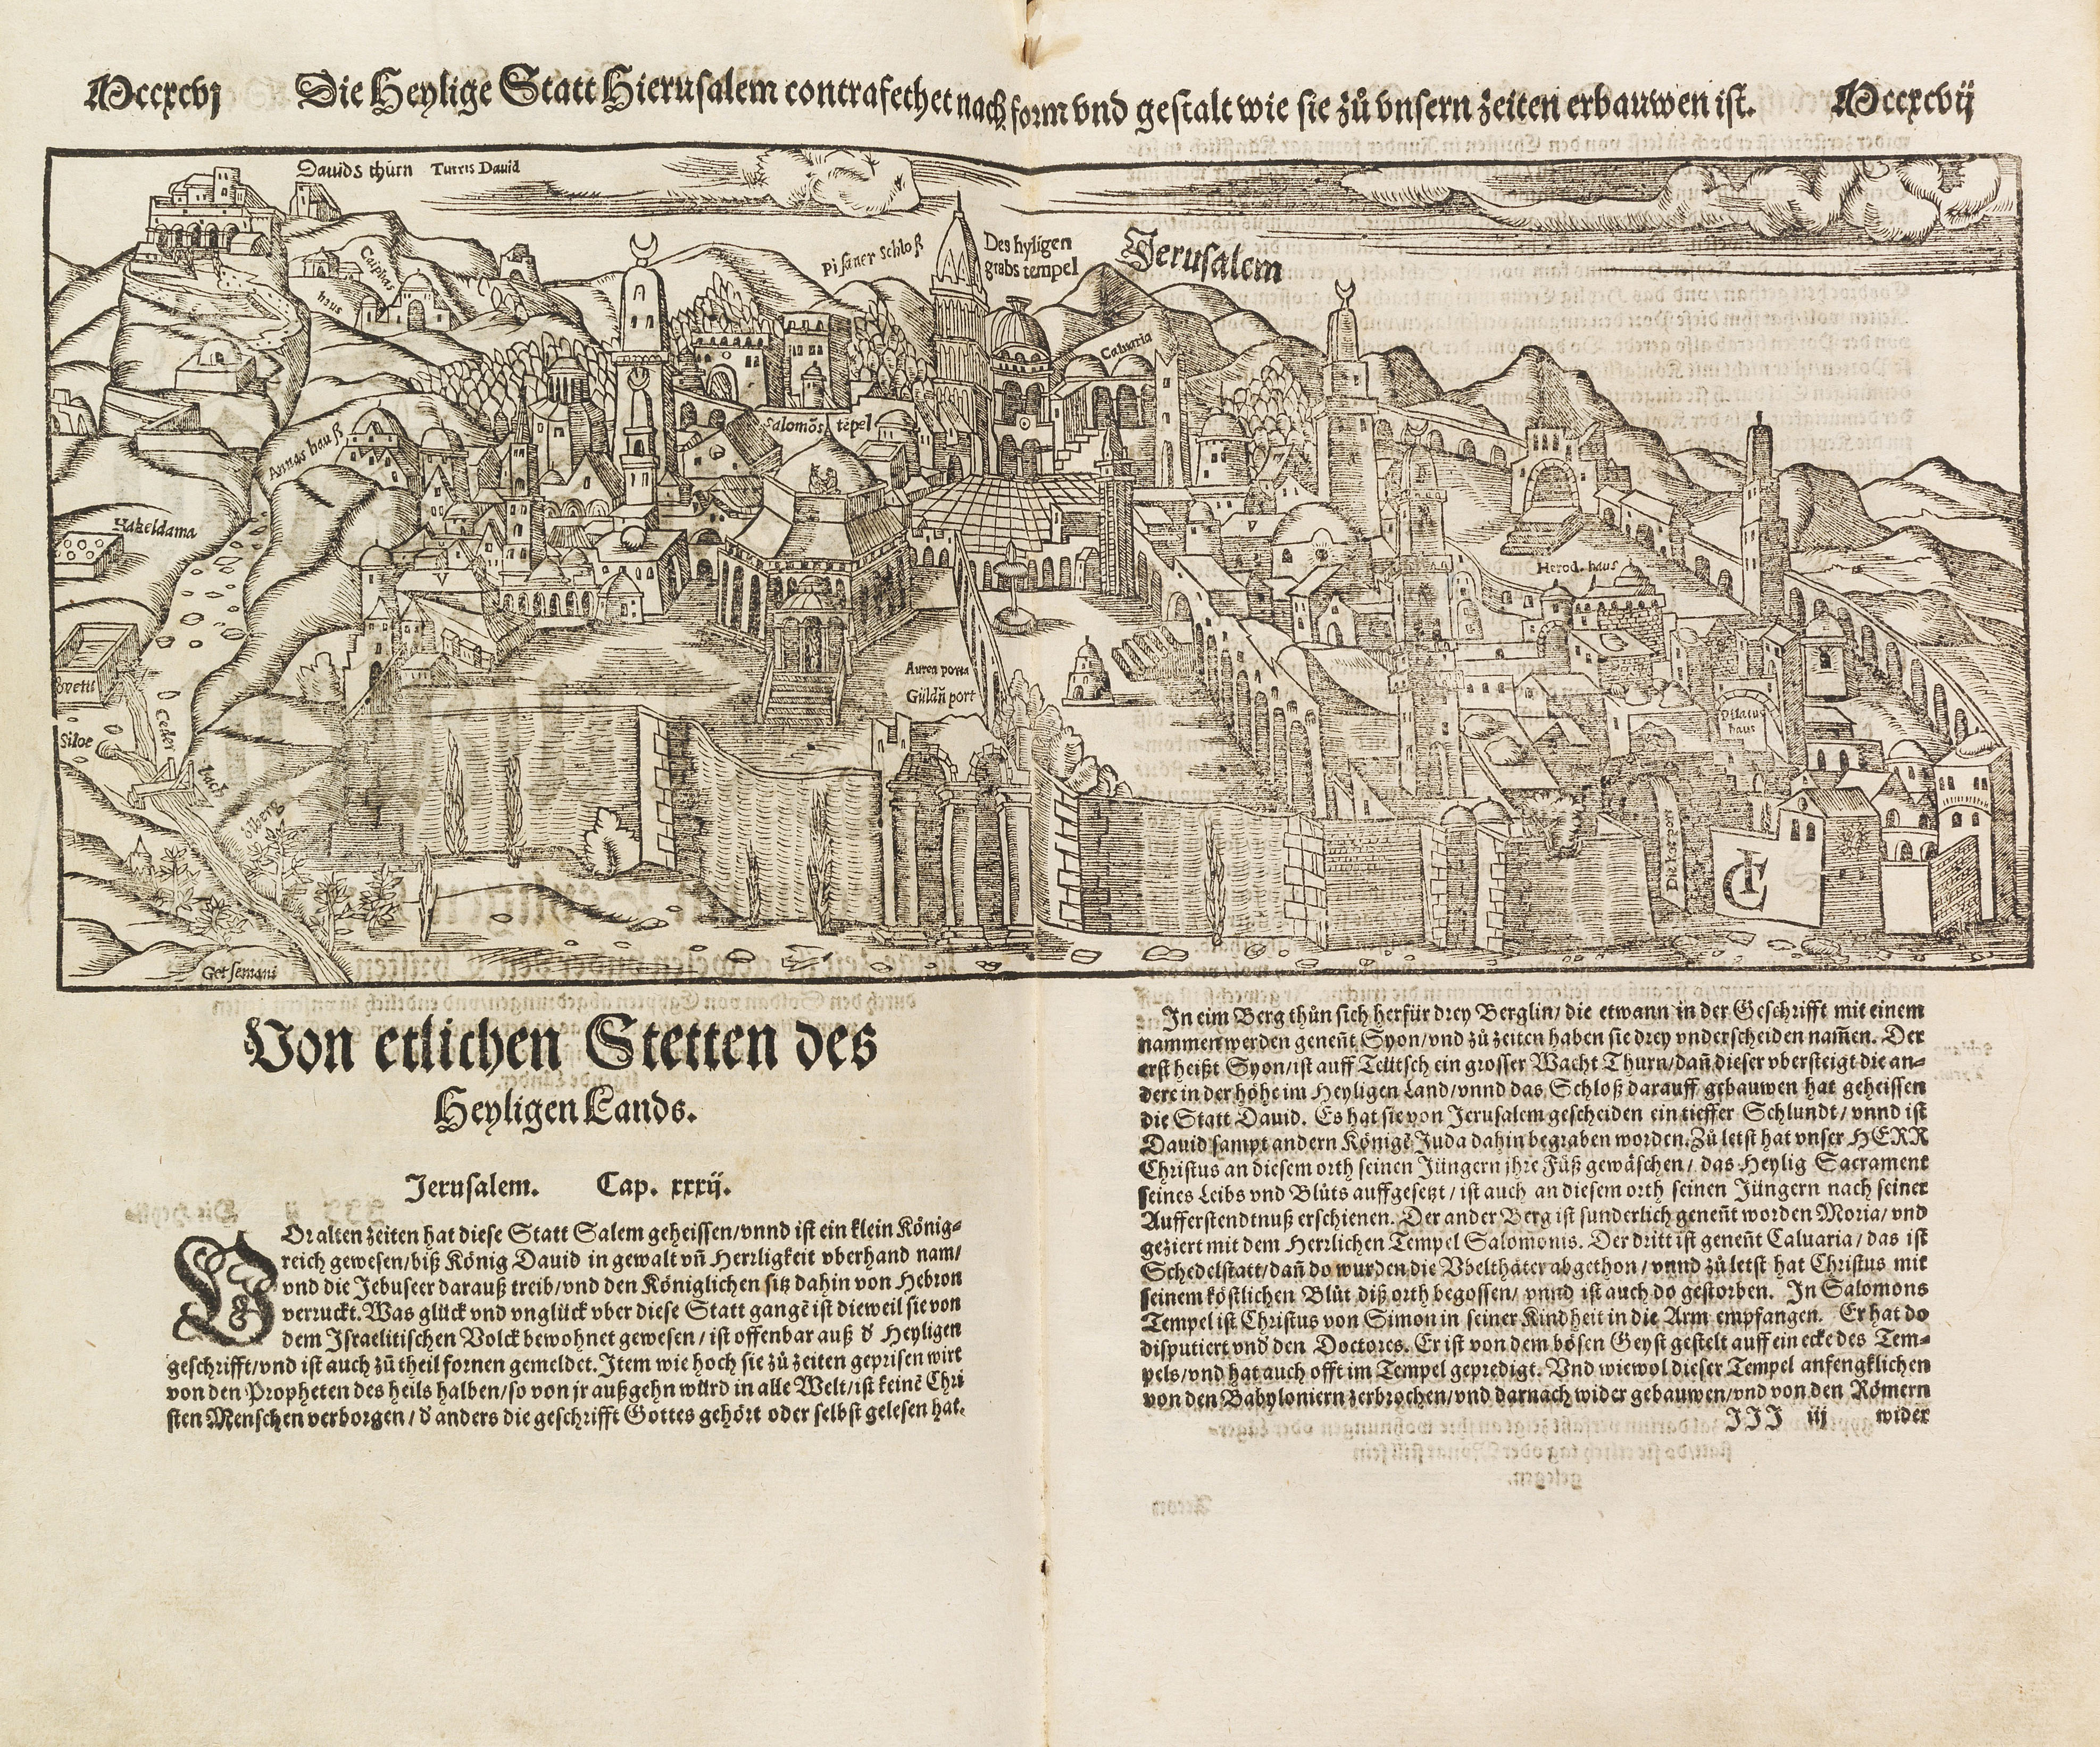 Mccxcvj
Die Heylige Statt Hierusalem contrafethet nach form vnd gestalt wie sie zů vnsern zeiten erbauwen ist.
Mccxcvij
Dauids thurn Turris Dauid
Caiphas
haus
Pisaner schloß
Des hyligen
grabs tempel
Jerusalem
Caluaria
Annas hauß
Salomōs tēpel
Hakeldama
Herod. haus
Aurea porta
Güldñ port
Siloe
Ceder
bach
ölberg
Pilatus
haus
Getsemani
Von etlichen Stetten des
Heyligen Lands.
Jerusalem. Cap. xxxij.
VOr alten zeiten hat diese Statt Salem geheissen/vnnd ist ein klein König-
reich gewesen/biß König Dauid in gewalt vñ Herrligkeit vberhand nam/
vnd die Jebuseer darauß treib/vnd den Königlichen sitz dahin von Hebron
verruckt. Was glück vnd vnglück vber diese Statt gangē ist dieweil sie von
dem Israelitischen Volck bewohnet gewesen/ist offenbar auß d̄ Heyligen
geschrifft/vnd ist auch zů theil fornen gemeldet. Item wie hoch sie zů zeiten geprisen wirt
von den Propheten des heils halben/so von jr außgehn würd in alle Welt/ist keinē Chri
sten Menschen verborgen/d̄ anders die geschrifft Gottes gehört oder selbst gelesen hat.
In eim Berg thůn sich herfür drey Berglin/die etwann in der Geschrifft mit einem
nammen werden geneñt Syon/vnd zů zeiten haben sie drey vnderscheiden nam̄en. Der
erst heißt Syon/ist auff Teütsch ein grosser Wacht Thurn/dañ dieser vbersteigt die an-
dere in der höhe im Heyligen Land/vnnd das Schloß darauff gebauwen hat geheissen
die Statt Dauid. Es hat sie von Jerusalem gescheiden ein tieffer Schlundt/vnnd ist
Dauid sampt andern Königē Juda dahin begraben worden. Zů letst hat vnser HERR
Christus an diesem orth seinen Jüngern jhre Füß gewäschen/das Heylig Sacrament
seines Leibs vnd Blůts auffgesetzt/ist auch an diesem orth seinen Jüngern nach seiner
Aufferstendtnuß erschienen. Der ander Berg ist sunderlich geneñt worden Moria/vnd
geziert mit dem Herrlichen Tempel Salomonis. Der dritt ist geneñt Caluaria/das ist
Schedelstatt/dañ do wurden die Vbelthäter abgethon/vnnd zů letst hat Christus mit
seinem köstlichen Blůt diß orth begossen/vnnd ist auch do gestorben. In Salomons
Tempel ist Christus von Simon in seiner Kindheit in die Arm empfangen. Er hat do
disputiert vnd den Doctores. Er ist von dem bösen Geyst gestelt auff ein ecke des Tem-
pels/vnd hat auch offt im Tempel gepredigt. Vnd wiewol dieser Tempel anfengklichen
von den Babyloniern zerbrochen/vnd darnach wider gebauwen/vnd von den Römern
JJJ iij wider